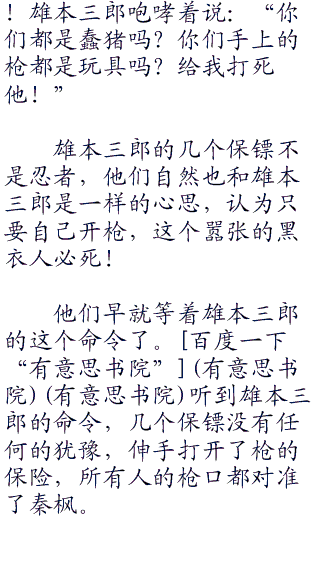 ！雄本三郎咆哮着说：“你
们都是蠢猪吗？你们手上的
枪都是玩具吗？给我打死
他！”
雄本三郎的几个保镖不
是忍者，他们自然也和雄本
三郎是一样的心思，认为只
要自己开枪，这个嚣张的黑
衣人必死！
他们早就等着雄本三郎
的这个命令了。[百度一下
“有意思书院”](有意思书
院)(有意思书院)听到雄本三
郎的命令，几个保镖没有任
何的犹豫，伸手打开了枪的
保险，所有人的枪口都对准
了秦枫。